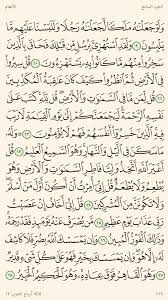 الجزء السابع الأنعام
وَلَوْ جَعَلْنَٰهُ مَلَكًا لَّجَعَلْنَٰهُ رَجُلًا وَلَلَبَسْنَا عَلَيْهِم مَّا
يَلْبِسُونَ ٩ وَلَقَدِ ٱسْتُهْزِئَ بِرُسُلٍ مِّن قَبْلِكَ فَحَاقَ بِٱلَّذِينَ
سَخِرُوا۟ مِنْهُم مَّا كَانُوا۟ بِهِۦ يَسْتَهْزِءُونَ ١٠ قُلْ سِيرُوا۟
فِى ٱلْأَرْضِ ثُمَّ ٱنظُرُوا۟ كَيْفَ كَانَ عَٰقِبَةُ ٱلْمُكَذِّبِينَ
١١ قُل لِّمَن مَّا فِى ٱلسَّمَٰوَٰتِ وَٱلْأَرْضِ قُل لِّلَّهِ كَتَبَ عَلَىٰ
نَفْسِهِ ٱلرَّحْمَةَ لَيَجْمَعَنَّكُمْ إِلَىٰ يَوْمِ ٱلْقِيَٰمَةِ لَا رَيْبَ فِيهِ
ٱلَّذِينَ خَسِرُوٓا۟ أَنفُسَهُمْ فَهُمْ لَا يُؤْمِنُونَ ١٢ ۞ وَلَهُۥ مَا سَكَنَ
فِى ٱلَّيْلِ وَٱلنَّهَارِ وَهُوَ ٱلسَّمِيعُ ٱلْعَلِيمُ ١٣ قُلْ أَغَيْرَ ٱللَّهِ
أَتَّخِذُ وَلِيًّا فَاطِرِ ٱلسَّمَٰوَٰتِ وَٱلْأَرْضِ وَهُوَ يُطْعِمُ
وَلَا يُطْعَمُ قُلْ إِنِّىٓ أُمِرْتُ أَنْ أَكُونَ أَوَّلَ مَنْ أَسْلَمَ
وَلَا تَكُونَنَّ مِنَ ٱلْمُشْرِكِينَ ١٤ قُلْ إِنِّىٓ أَخَافُ إِنْ عَصَيْتُ
رَبِّى عَذَابَ يَوْمٍ عَظِيمٍ ١٥ مَّن يُصْرَفْ عَنْهُ يَوْمَئِذٍ فَقَدْ رَحِمَهُۥ
وَذَٰلِكَ ٱلْفَوْزُ ٱلْمُبِينُ ١٦ وَإِن يَمْسَسْكَ ٱللَّهُ بِضُرٍّ فَلَا
كَاشِفَ لَهُۥٓ إِلَّا هُوَ وَإِن يَمْسَسْكَ بِخَيْرٍ فَهُوَ عَلَىٰ كُلِّ شَىْءٍ
قَدِيرٌ ١٧ وَهُوَ ٱلْقَاهِرُ فَوْقَ عِبَادِهِۦ وَهُوَ ٱلْحَكِيمُ ٱلْخَبِيرُ ١٨
١٢٩ ثلاثة أرباع الحزب ١٣